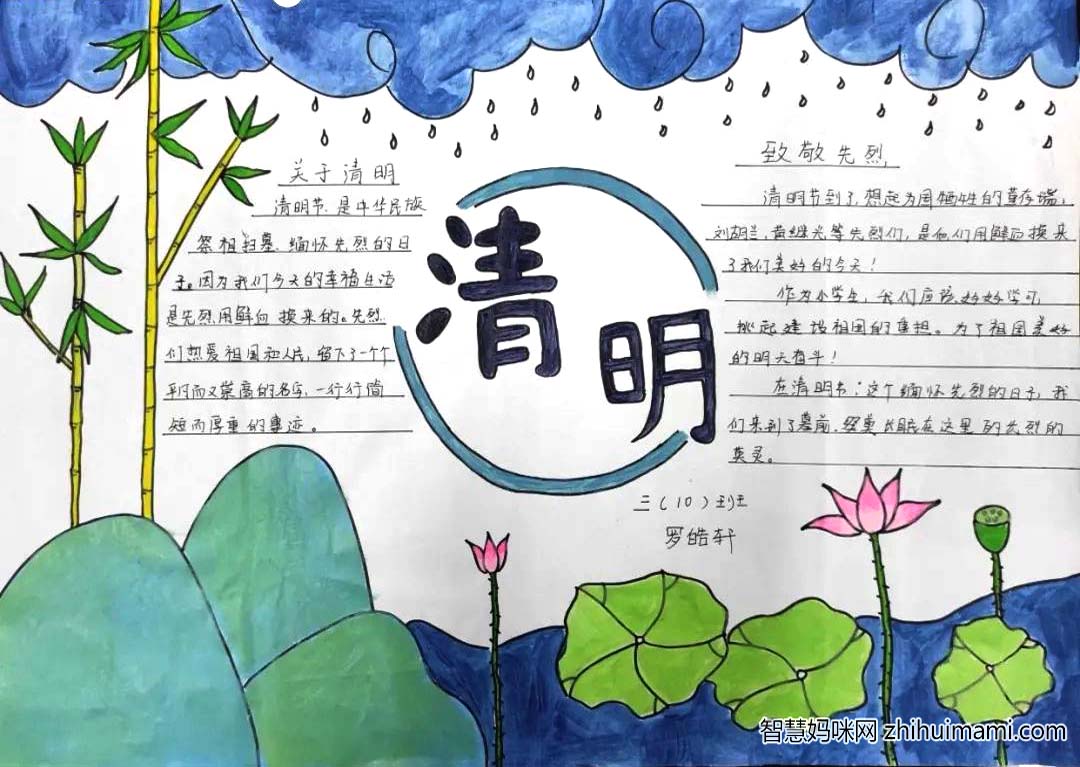 关于清明
清明节、是中华民族
祭祖扫墓、缅怀先烈的日
子。因为我们今天的幸福生活
是先烈用鲜血换来的。先烈
们热爱祖国和人民,留下了一个个
平凡而又崇高的名字,一行行简
短而厚重的事迹。
清明
致敬先烈
清明节到了,想起为国牺牲的董存瑞,
刘胡兰,黄继光等先烈们,是他们用鲜血换来
了我们美好的今天!
作为小学生,我们应该好好学习
挑起建设祖国的重担。为了祖国美好
的明天奋斗!
在清明节:这个缅怀先烈的日子,我
们来到了墓前,祭奠长眠在这里的先烈的
英灵。
三(10)班
罗皓轩
智慧妈咪网 zhihuimami.com